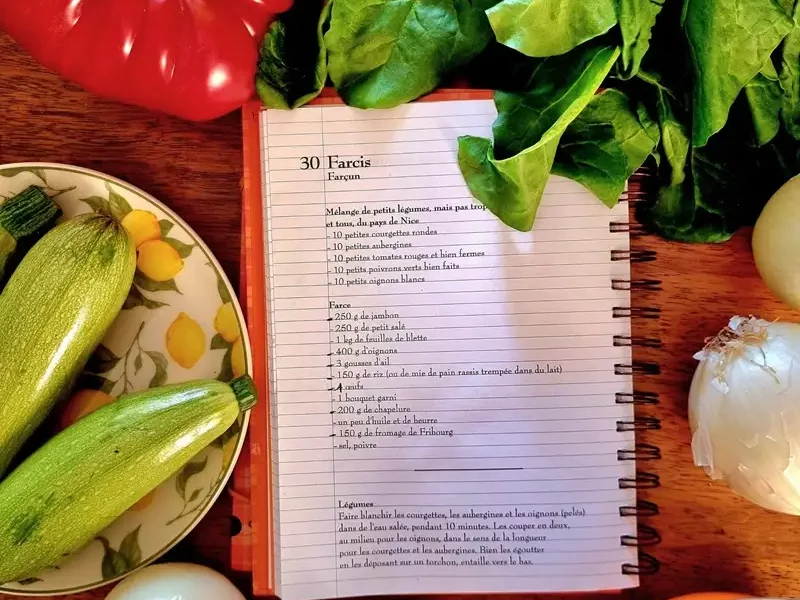 30 Farcis
Farçun
Mélange de petits légumes, mais pas trop
et tous, du pays de Nice
- 10 petites courgettes rondes
- 10 petites aubergines
- 10 petites tomates rouges et bien fermes
- 10 petits poivrons verts bien faits
- 10 petits oignons blancs
Farce
- 250 g de jambon
- 250 g de petit salé
- 1 kg de feuilles de blette
- 400 g d'oignons
- 3 gousses d'ail
- 150 g de riz (ou de mie de pain rassis trempée dans du lait)
- 4 œufs
- 1 bouquet garni
- 200 g de chapelure
- un peu d'huile et de beurre
- 150 g de fromage de Fribourg
- sel, poivre
Légumes
Faire blanchir les courgettes, les aubergines et les oignons (pelés)
dans de l'eau salée, pendant 10 minutes. Les couper en deux,
au milieu pour les oignons, dans le sens de la longueur
pour les courgettes et les aubergines. Bien les égoutter
en les déposant sur un torchon, entaille vers le bas.